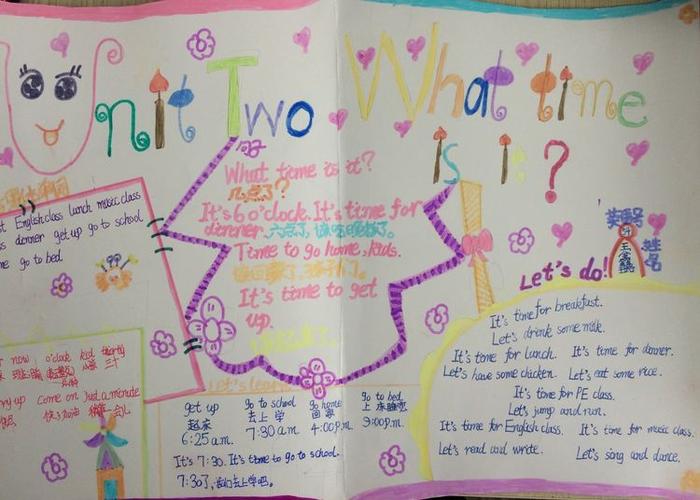 Unit Two What time
is it?
What time is it?
几点了?
It's 6 o'clock. It's time for
dinner. 六点了,
Time to go home, kids.
It's time to get
up.
English class lunch music class
dinner get up go to school
go to bed.
now o'clock kid thirty
三十
Come on Just a minute
Let's learn
get up go to school go home go to bed
起床 去上学 回家 上床睡觉
6:25 a.m. 7:30 a.m. 4:00 p.m. 9:00 p.m.
It's 7:30. It's time to go to school.
7:30了,我们去上学吧。
姓名
Let's do!
It's time for breakfast.
Let's drink some milk.
It's time for lunch. It's time for dinner.
Let's have some chicken. Let's eat some rice.
It's time for PE class.
Let's jump and run.
It's time for English class. It's time for music class.
Let's read and write. Let's sing and dance.